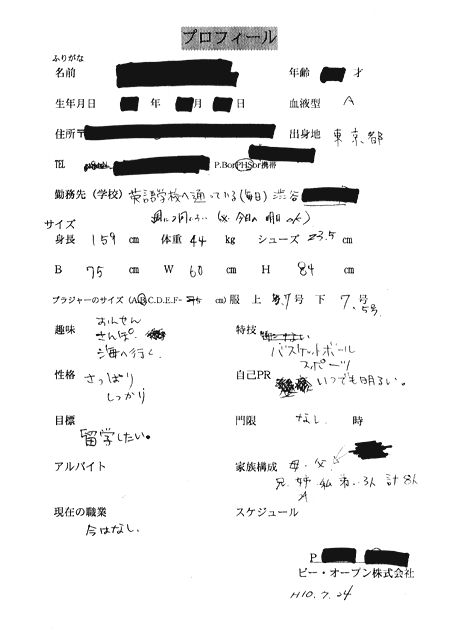 プロフィール
ふりがな
名前 年齢 才
生年月日 年 月 日 血液型 A
住所〒 出身地 東京都
TEL P.BorPHSor携帯
勤務先（学校） 英語学校へ通っている(毎日) 渋谷
サイズ
身長 159 cm 体重 44 kg シューズ 23.5 cm
B 75 cm W 60 cm H 84 cm
ブラジャーのサイズ (A.B.C.D.E.F- 75 cm) 服 上 7号 下 7号
5号
趣味 おんせん
さんぽ
海へ行く。
特技
バスケットボール
スポーツ
性格 さっぱり
しっかり
自己PR いつでも明るい。
目標
留学したい。
門限 なし 時
アルバイト
家族構成 母、父
兄 姉 私 弟 3人 計8人
現在の職業
今はなし。
スケジュール
P
ピー・オープン株式会社
H10.7.24